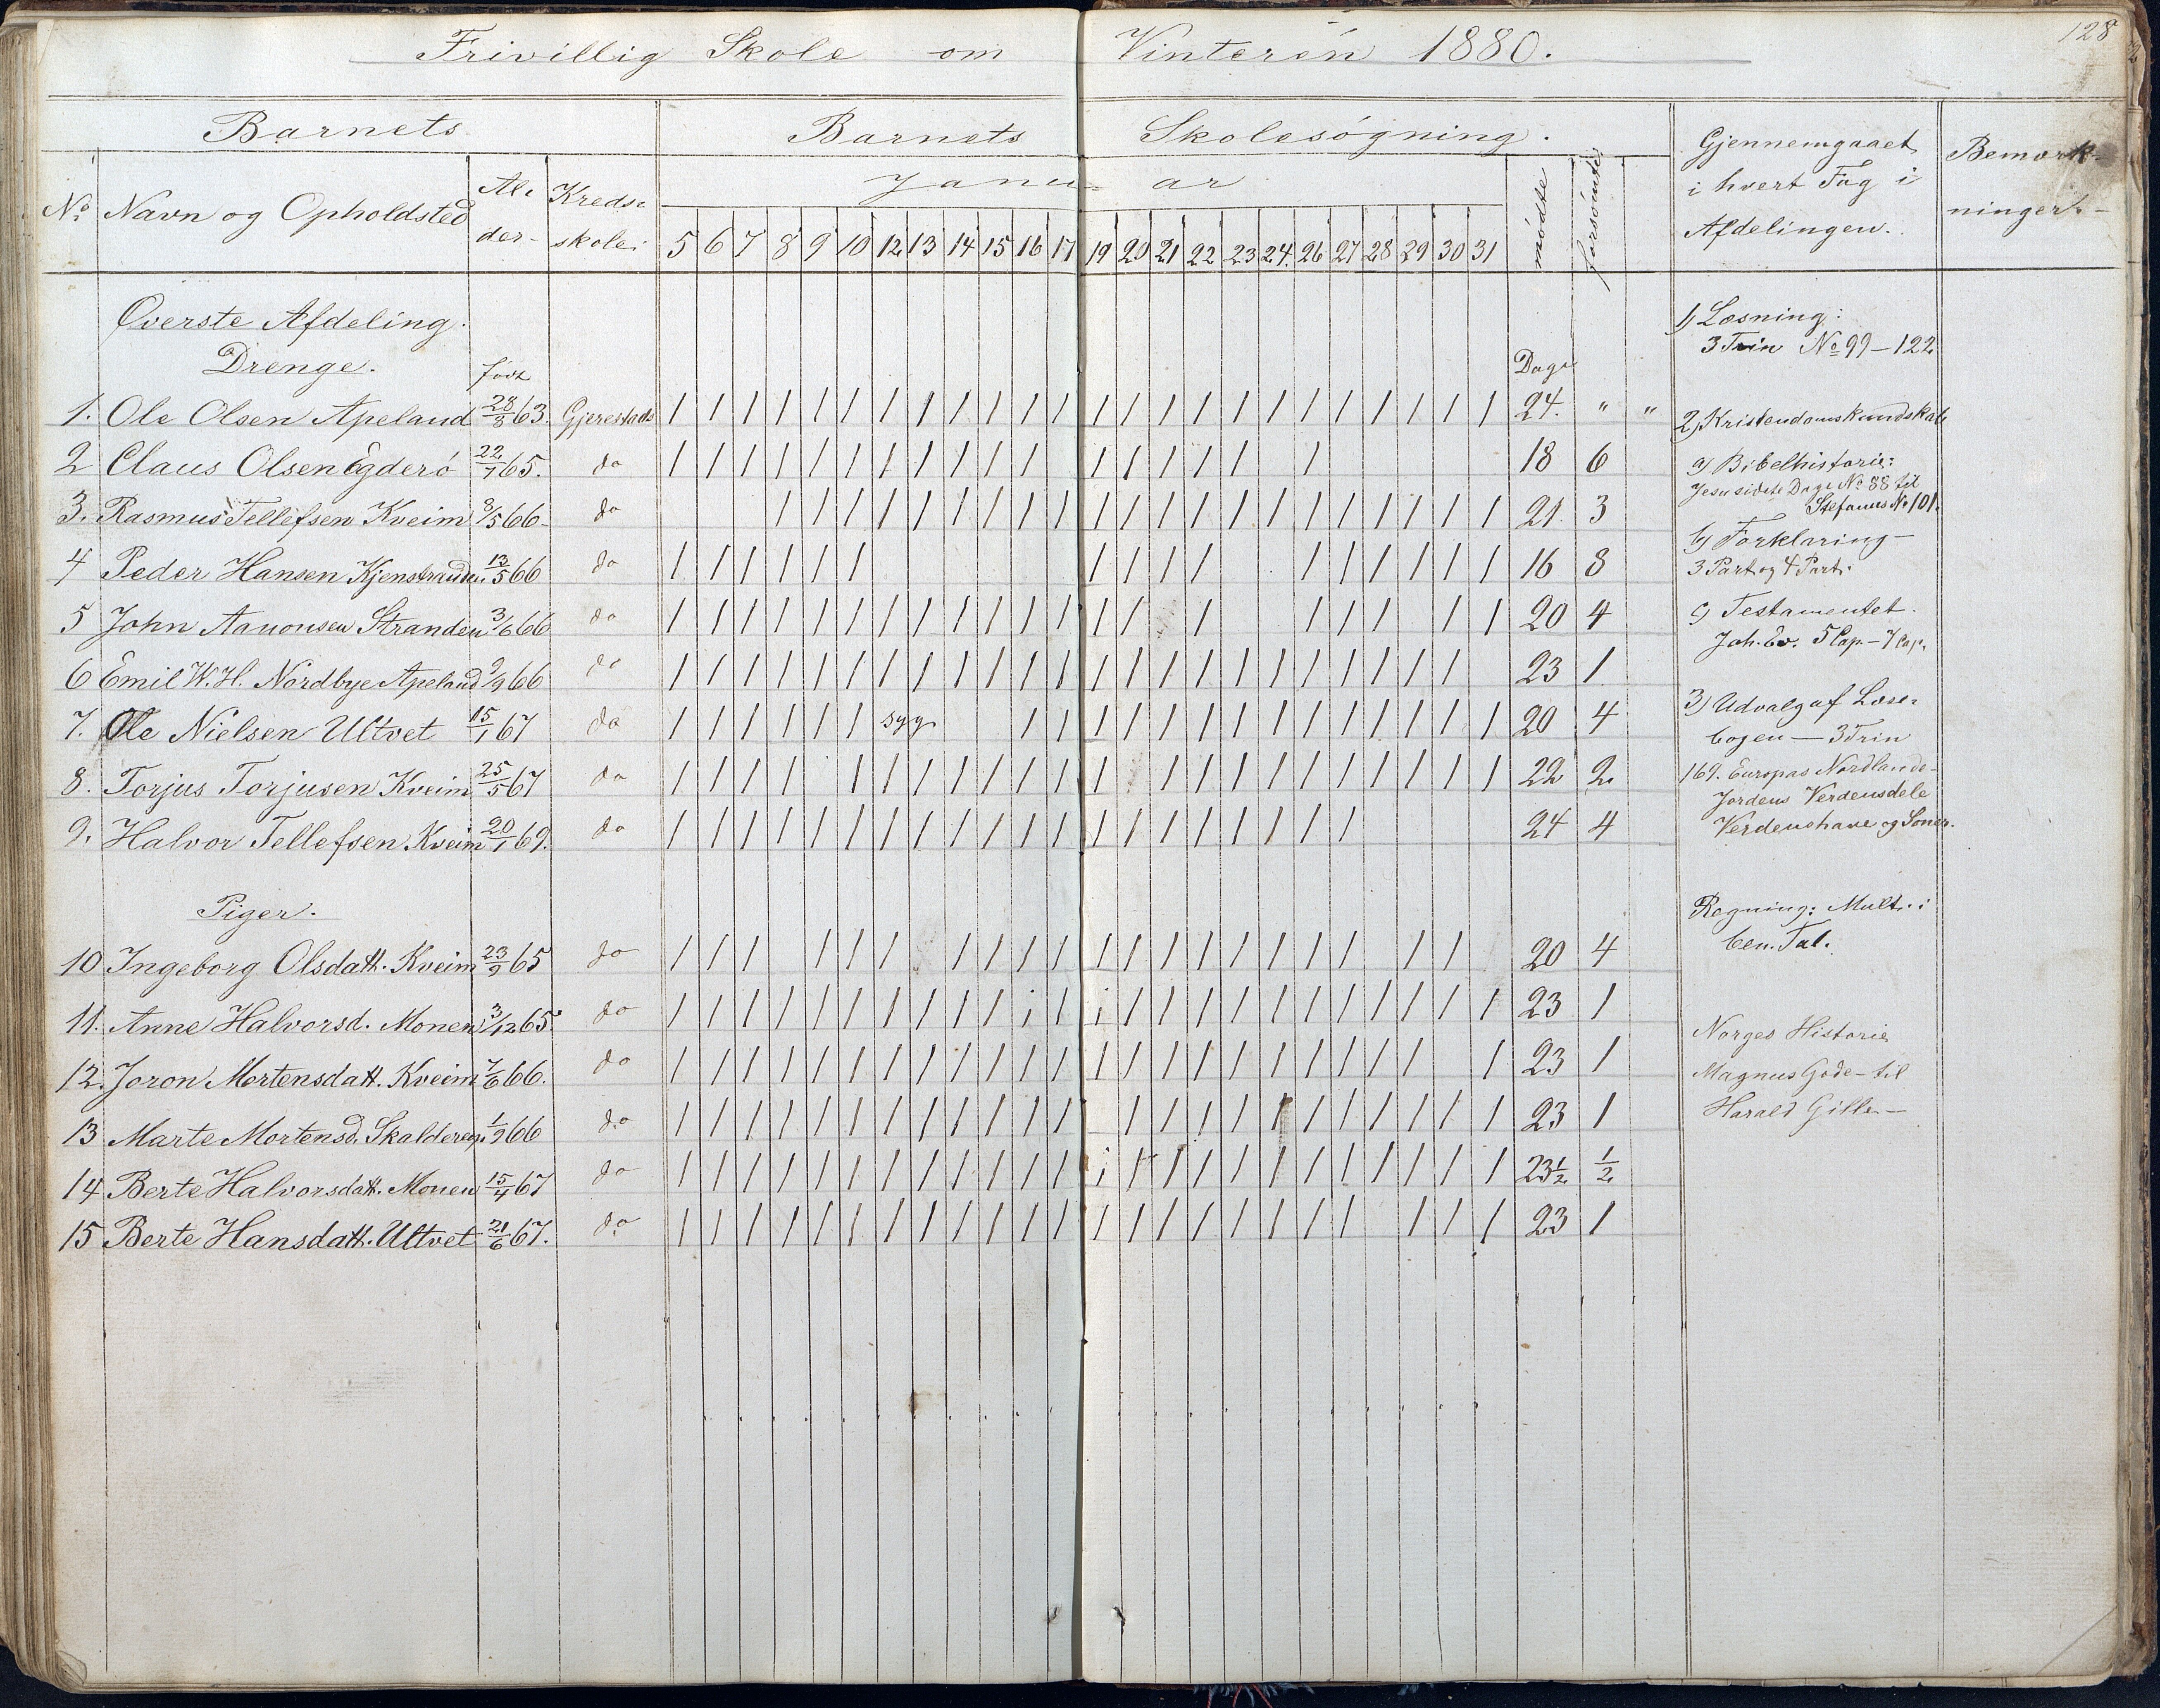 128
Frivillig Skole om Vinteren 1880.
Barnets Barnets Skolesøgning. Gjennemgaaet i hvert Fag i Afdelingen. Bemærkninger.
No. Navn og Opholdsted Alder Kredsskole Januar mødte forsømte
5 6 7 8 9 10 12 13 14 15 16 17 19 20 21 22 23 24. 26 27 28 29 30 31
Øverste Afdeling.
Drenge. født Dage
1. Ole Olsen Apeland 28/8 63. Gjerestads / / / / / / / / / / / / / / / / / / / / / / / / 24. " "
2 Claus Olsen Egderø 22/7 65. do / / / / / / / / / / / / / / / / / / 18 6
3. Rasmus Tellefsen Kveim 3/5 66 do / / / / / / / / / / / / / / / / / / / / / 21. 3
4 Peder Hansen Kjenstranden 13/5 66 do / / / / / / / / / / / / / / / / 16 8
5 John Aanonsen Stranden 3/6 66 do / / / / / / / / / / / / / / / / / / / / 20 4
6 Emil W. H. Nordbye Apeland 9/9 66 do / / / / / / / / / / / / / / / / / / / / / / / 23 1
7. Ole Nielsen Ultvet 15/1 67 do / / / / / / syg / / / / / / / / / / / / / / 20 4
8. Torjus Torjusen Kveim 25/5 67 do / / / / / / / / / / / / / / / / / / / / / / 22 2
9. Halvor Tellefsen Kveim 20/1 69. do / / / / / / / / / / / / / / / / / / / / 24 4
Piger.
10 Ingeborg Olsdatt. Kveim 23/9 65 do / / / / / / / / / / / / / / / / / / / / 20 4
11. Anne Halvorsd. Monen 3/12 65. do / / / / / / / / / / i / i / / / / / / / / / / / 23 1
12. Joron Mortensdatt. Kveim 7/6 66. do / / / / / / / / / / / / / / / / / / / / / / / 23 1
13 Marte Mortensd. Skaldereg. 1/9 66 do / / / / / / / / / / / / / / / / / / / / / / / 23 1
14 Berte Halvorsdatt. Monen 15/4 67 do / / / / / / / / / / / / i / / / / / / / / / / / 23 1/2 1/2
15 Berte Hansdatt. Ultvet 21/6 67. do / / / / / / / / / / / / / / / / / / / / / / / 23 1
1) Læsning:
3 Trin No 99 – 122
2) Kristendomskundskab
a) Bibelhistorie:
Jesu sidste Dage No 88 til
Stefanus No 101.
b) Forklaring –
3 Part og 4 Part.
c) Testamentet.
Joh. Ev. 5 Cap – 7 Cap.
3) Udvalg af Læse-
bogen — 3 Trin
169. Europas Nordlande-
Jordens Verdensdele
Verdenshave og Soner.
Regning: Mult. i
ben. Tal.
Norges Historie
Magnus Gode – til
Harald Gille –